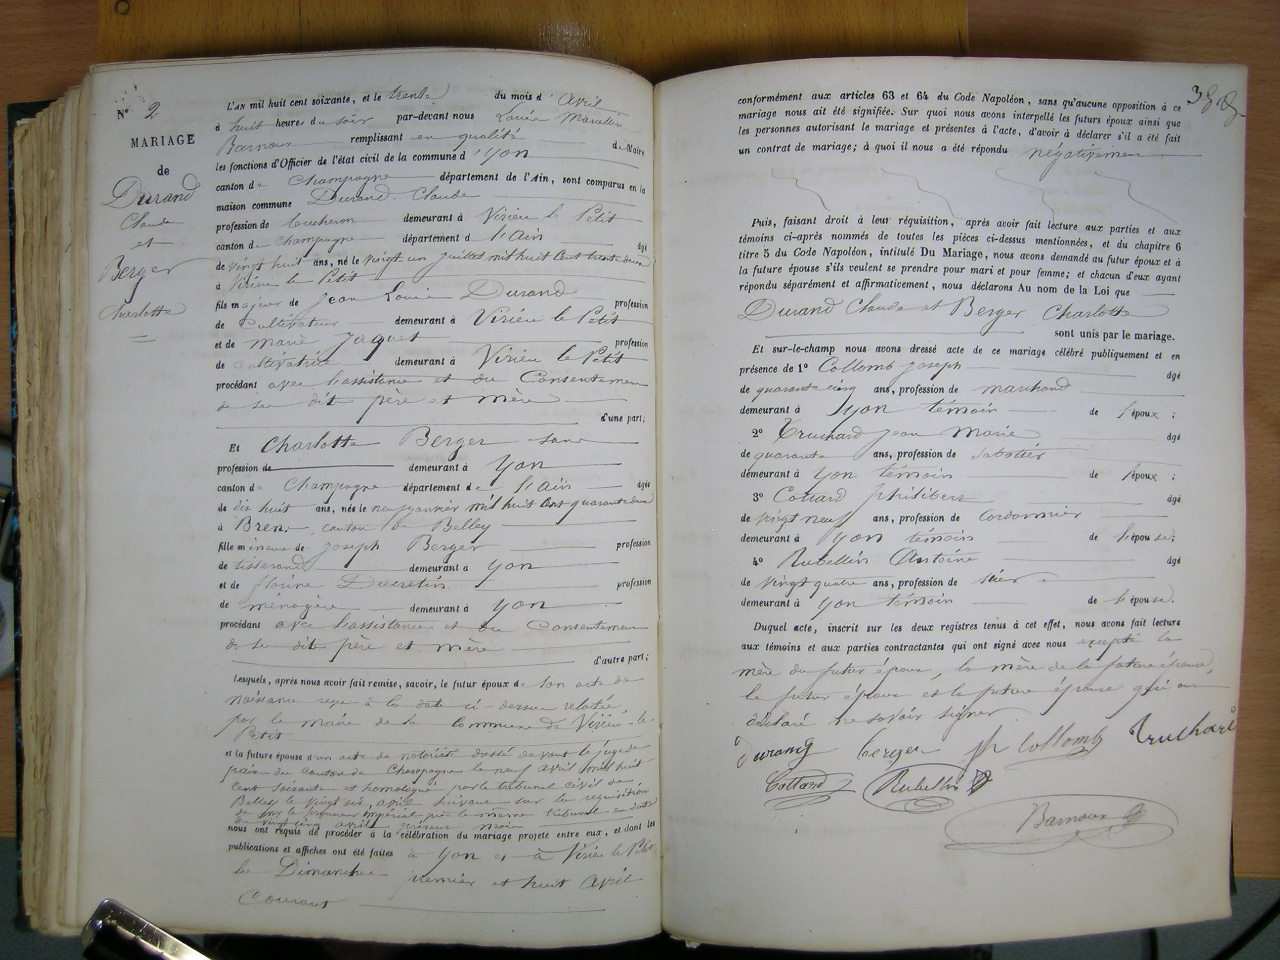 N° 2
MARIAGE
de
Durand
Claude
et
Berger
Charlotte
L'AN mil huit cent soixante, et le trente du mois d'avril
à huit heures du soir par-devant nous Louis Marcellin
Barnoux remplissant en qualité de Maire
les fonctions d'Officier de l'état civil de la commune d'yon
canton de Champagne département de l'Ain, sont comparus en la
maison commune Durand Claude
profession de bucheron demeurant à Virieu le Petit
canton de Champagne département d l'ain âgé
de vingt huit ans, né le vingt un juillet mil huit cent trente deux
à Virieu le Petit
fils majeur de Jean Louis Durand profession
de cultivateur demeurant à Virieu le Petit
et de marie Jaquet profession
de cultivatrice demeurant à Virieu le Petit
procédant avec l'assistance et du Consentement
de ses dit père et mère
d'une part;
Et Charlotte Berger sans
profession de demeurant à yon
canton de Champagne département de l'ain âgée
de dix huit ans, née le neuf janvier mil huit cent quarante deux
à Bren, canton de Belley
fille mineure de joseph Berger profession
de tisserand demeurant à yon
et de florine Ducretin profession
de ménagère demeurant à yon
procédant avec l'assistance et du Consentement
de ses dits père et mère
d'autre part;
Lesquels, après nous avoir fait remise, savoir, le futur époux de son acte de
naissance reçu à la date ci-dessus relatée,
par le maire de la Commune de Virieu-le-
Petit
et la future épouse d'un acte de notoriété dressé devant le juge de
paix du canton de Champagne le neuf avril mil huit
cent soixante et homologué par le tribunal civil de
Belley le vingt six avril suivant sur la requisition
de mr le procureur impérial près le même tribunal en date
du vingt cinq avril présent mois
nous ont requis de procéder à la célébration du mariage projeté entre eux, et dont les
publications et affiches ont été faites à yon et à Virieu le Petit
les Dimanches premier et huit avril
Courant
388
conformément aux articles 63 et 64 du Code Napoléon, sans qu'aucune opposition à ce
mariage nous ait été signifiée. Sur quoi nous avons interpellé les futurs époux ainsi que
les personnes autorisant le mariage et présentes à l'acte, d'avoir à déclarer s'il a été fait
un contrat de mariage; à quoi il nous a été répondu négativement
Puis, faisant droit à leur réquisition, après avoir fait lecture aux parties et aux
témoins ci-après nommés de toutes les pièces ci-dessus mentionnées, et du chapitre 6
titre 5 du Code Napoléon, intitulé Du Mariage, nous avons demandé au futur époux et à
la future épouse s'ils veulent se prendre pour mari et pour femme; et chacun d'eux ayant
répondu séparément et affirmativement, nous déclarons Au nom de la Loi que
Durand Claude et Berger Charlotte
sont unis par le mariage.
Et sur-le-champ nous avons dressé acte de ce mariage célébré publiquement et en
présence de 1° Collomb joseph âgé
de quarante cinq ans, profession de marchand
demeurant à yon témoin de l'époux;
2° Truchard jean Marie âgé
de quarante ans, profession de sabotier
demeurant à yon témoin de l'époux;
3° Cottard philibert âgé
de vingt neuf ans, profession de Cordonnier
demeurant à yon témoin de l'épouse;
4° Rubellin Antoine âgé
de vingt quatre ans, profession de
demeurant à yon témoin de l'épouse.
Duquel acte, inscrit sur les deux registres tenus à cet effet, nous avons fait lecture
aux témoins et aux parties contractantes qui ont signé avec nous excepté la
mère du futur époux, la mère de la future épouse,
le futur époux et la future épouse qui ont
déclaré ne savoir signer
durand berger jh Collomb Truchard
Cottard Rubellin
Barnoux